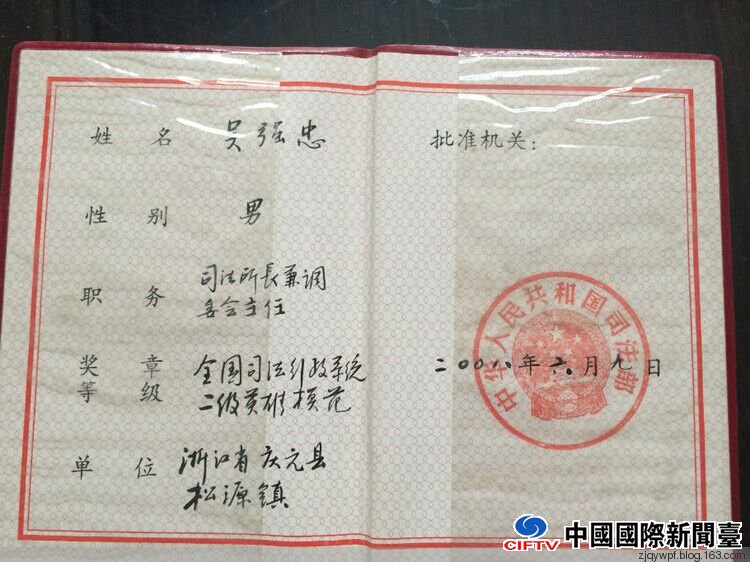 姓 名 吴强忠
性 别 男
职 务 司法所长兼调
委会主任
奖 章
等 级 全国司法行政系统
二级英雄模范
单 位 浙江省庆元县
松源镇
批准机关:
中华人民共和国司法部
二〇〇八年六月九日
CIFTV 中國國際新聞臺
zjqywpf.blog.163.com